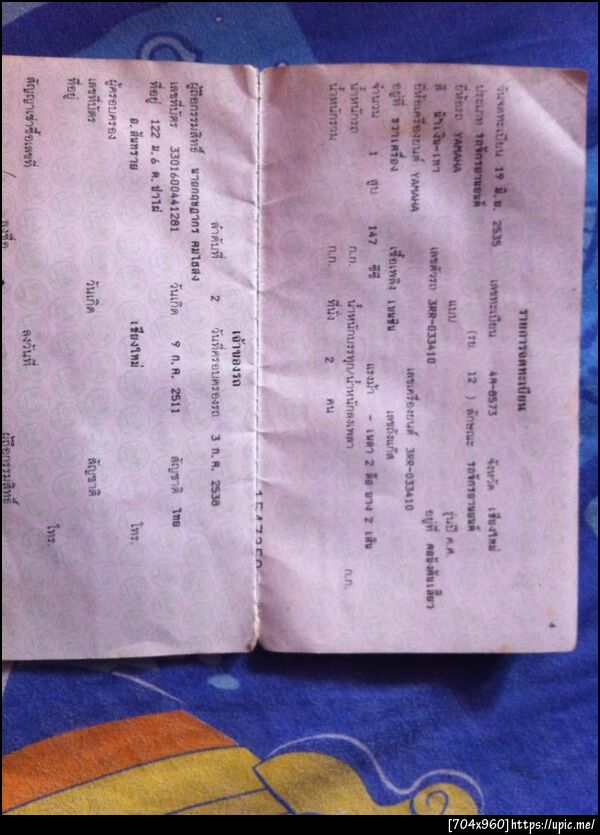 4
รายการจดทะเบียน
วันจดทะเบียน 19 มิ.ย. 2535 เลขทะเบียน 4ค-8573 จังหวัด เชียงใหม่
ประเภท รถจักรยานยนต์ (รย. 12 ) ลักษณะ รถจักรยานยนต์
ยี่ห้อรถ YAMAHA แบบ รุ่นปี ค.ศ.
สี น้ำเงิน-เทา เลขตัวรถ 3RR-033410 อยู่ที่ คอบังคับเลี้ยว
ยี่ห้อเครื่องยนต์ YAMAHA เลขเครื่องยนต์ 3RR-033410
อยู่ที่ ขวาเครื่อง เชื้อเพลิง เบนซิน เลขถังแก๊ส
จำนวน 1 สูบ 147 ซีซี แรงม้า - เพลา 2 ล้อ ยาง 2 เส้น
น้ำหนักรถ ก.ก. น้ำหนักบรรทุก/น้ำหนักลงเพลา ก.ก.
น้ำหนักรวม ก.ก. ที่นั่ง 2 คน
เจ้าของรถ
ลำดับที่ 2 วันที่ครอบครองรถ 3 ก.ค. 2538
ผู้ถือกรรมสิทธิ์ นายกฤษฎากร คมไธสง
เลขที่บัตร 3301600441281 วันเกิด 9 ก.ค. 2511 สัญชาติ ไทย
ที่อยู่ 122 ม.6 ต.ป่าไผ่
อ.สันทราย เชียงใหม่ โทร.
ผู้ครอบครอง
เลขที่บัตร วันเกิด สัญชาติ
ที่อยู่
โทร.
สัญญาเช่าซื้อเลขที่ ลงวันที่ ผู้ถือกรรมสิทธิ์
[704x960]https://upic.me/